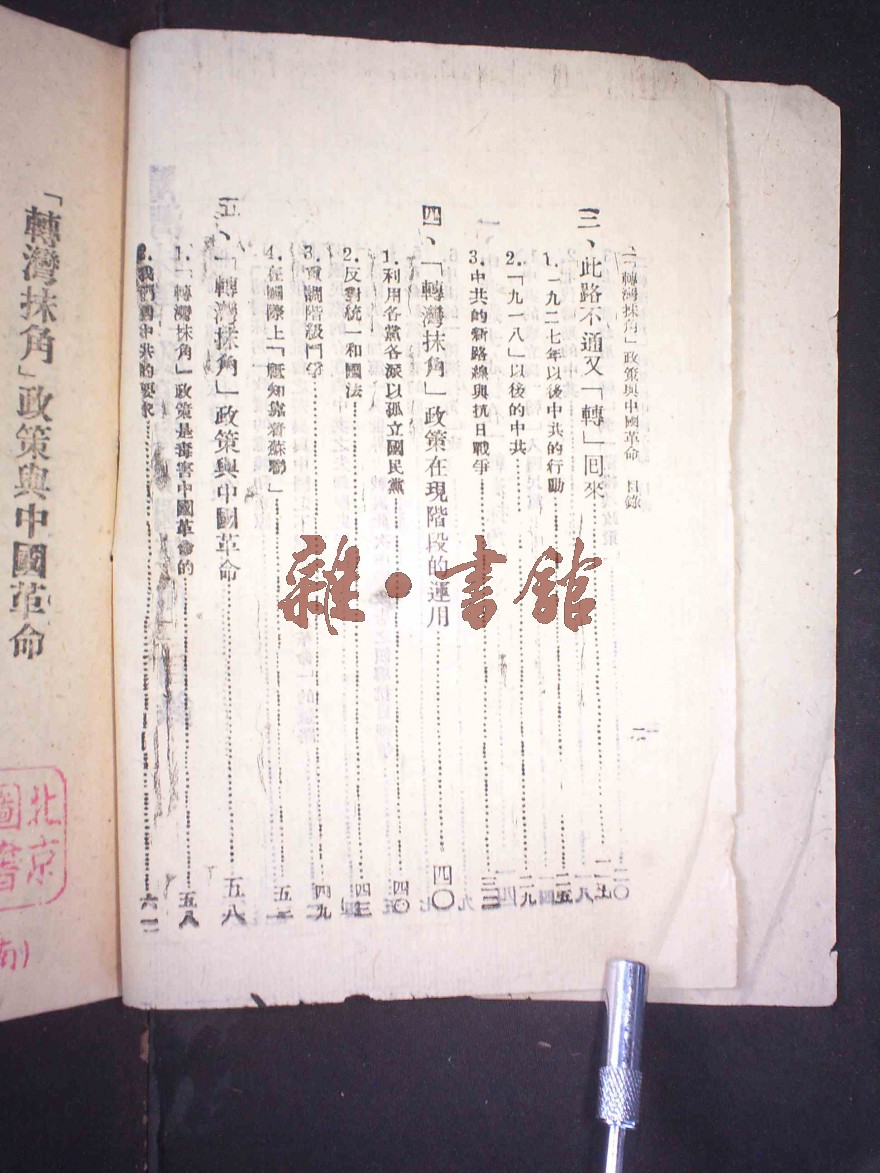 「轉灣抹角」政策與中國革命 目錄
二
三、此路不通又「轉」囘來
1.一九二七年以後中共的行動……二五
2.「九一八」以後的中共……二九
3.中共的新路線與抗日戰爭……三二
四、「轉灣抹角」政策在現階段的運用……四〇
1.利用各黨各派以孤立國民黨……四〇
2.反對統一和國法……四三
3.強調階級鬥爭……四九
4.在國際上「祇知靠着蘇聯」……五二
五、「轉灣抹角」政策與中國革命……五八
1.「轉灣抹角」政策是毒害中國革命的……五八
2.我們對中共的要求……六二
「轉灣抹角」政策與中國革命
北京
圖書
雜·書館